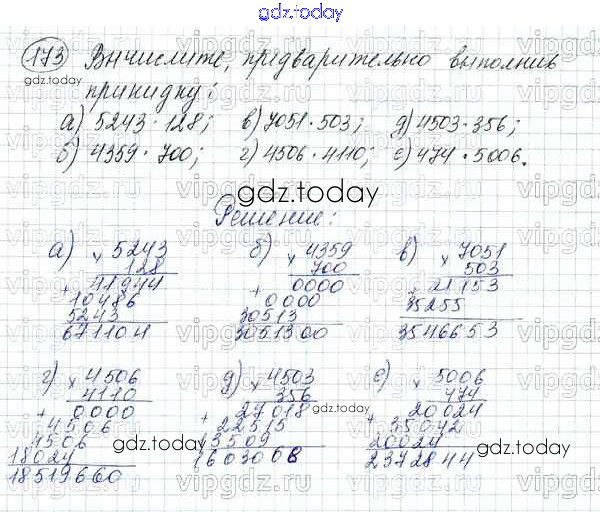 gdz.today
173 Вычислите, предварительно выполнив
gdz.today
прикидку:
а) 5243·128; в) 7051·503; д) 4503·356;
б) 4359·700; г) 4506·4110; е) 474·5006.
gdz.today
Решение:
а) × 5243 б) × 4359 в) × 7051
128 700 503
+ 41944 + 0000 + 21153
10486 0000 35255
5243 30513 3546653
671104 3051300
г) × 4506 д) × 4503 е) × 5006
4110 356 474
+ 0000 + 27018 + 20024
4506 22515 35042
4506 13509 20024
18024 1603068 2372844
18519660
gdz.today
gdz.today
gdz.today
vipgdz.ru